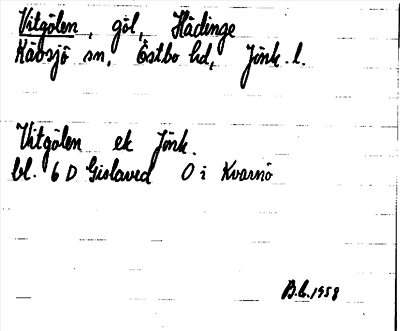 Vitgölen, göl, Hädinge
Kävsjö sn, Östbo hd, Jönk. l.
Vitgölen ek Jönk.
bl. 6 D Gislaved O i Kvarnö
B.L. 1958